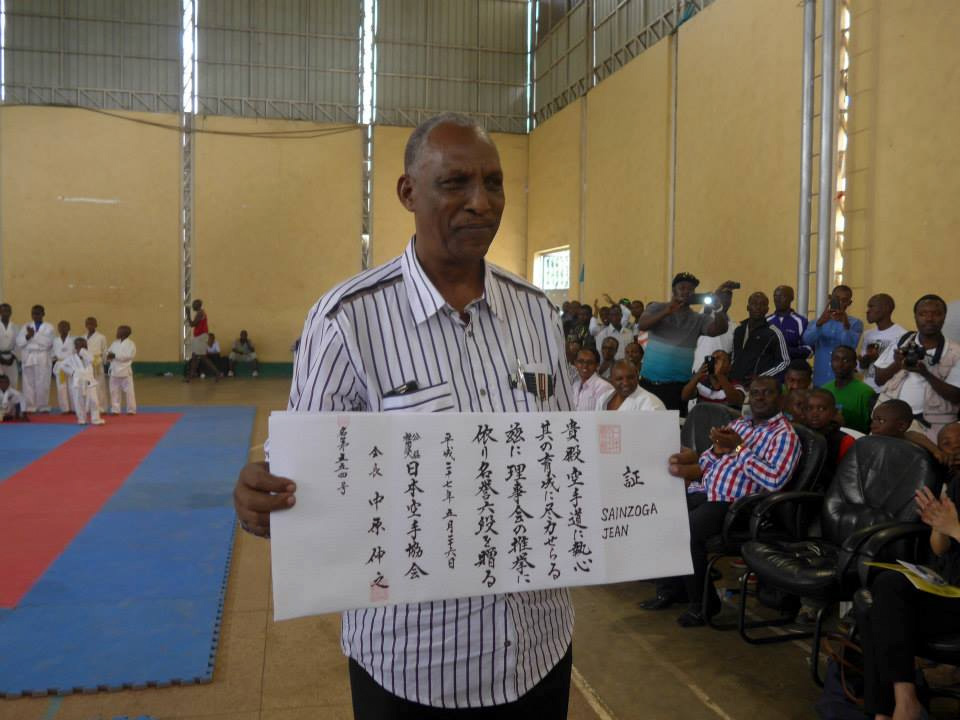 証
SAINZOGA
JEAN
貴殿空手道に熱心
其の育成に尽力せらる
茲に理事会の推挙に
依り名誉六段を贈る
平成二十七年五月二十六日
公益
社団法人
日本空手協会
会長 中原伸之
名第五五四号